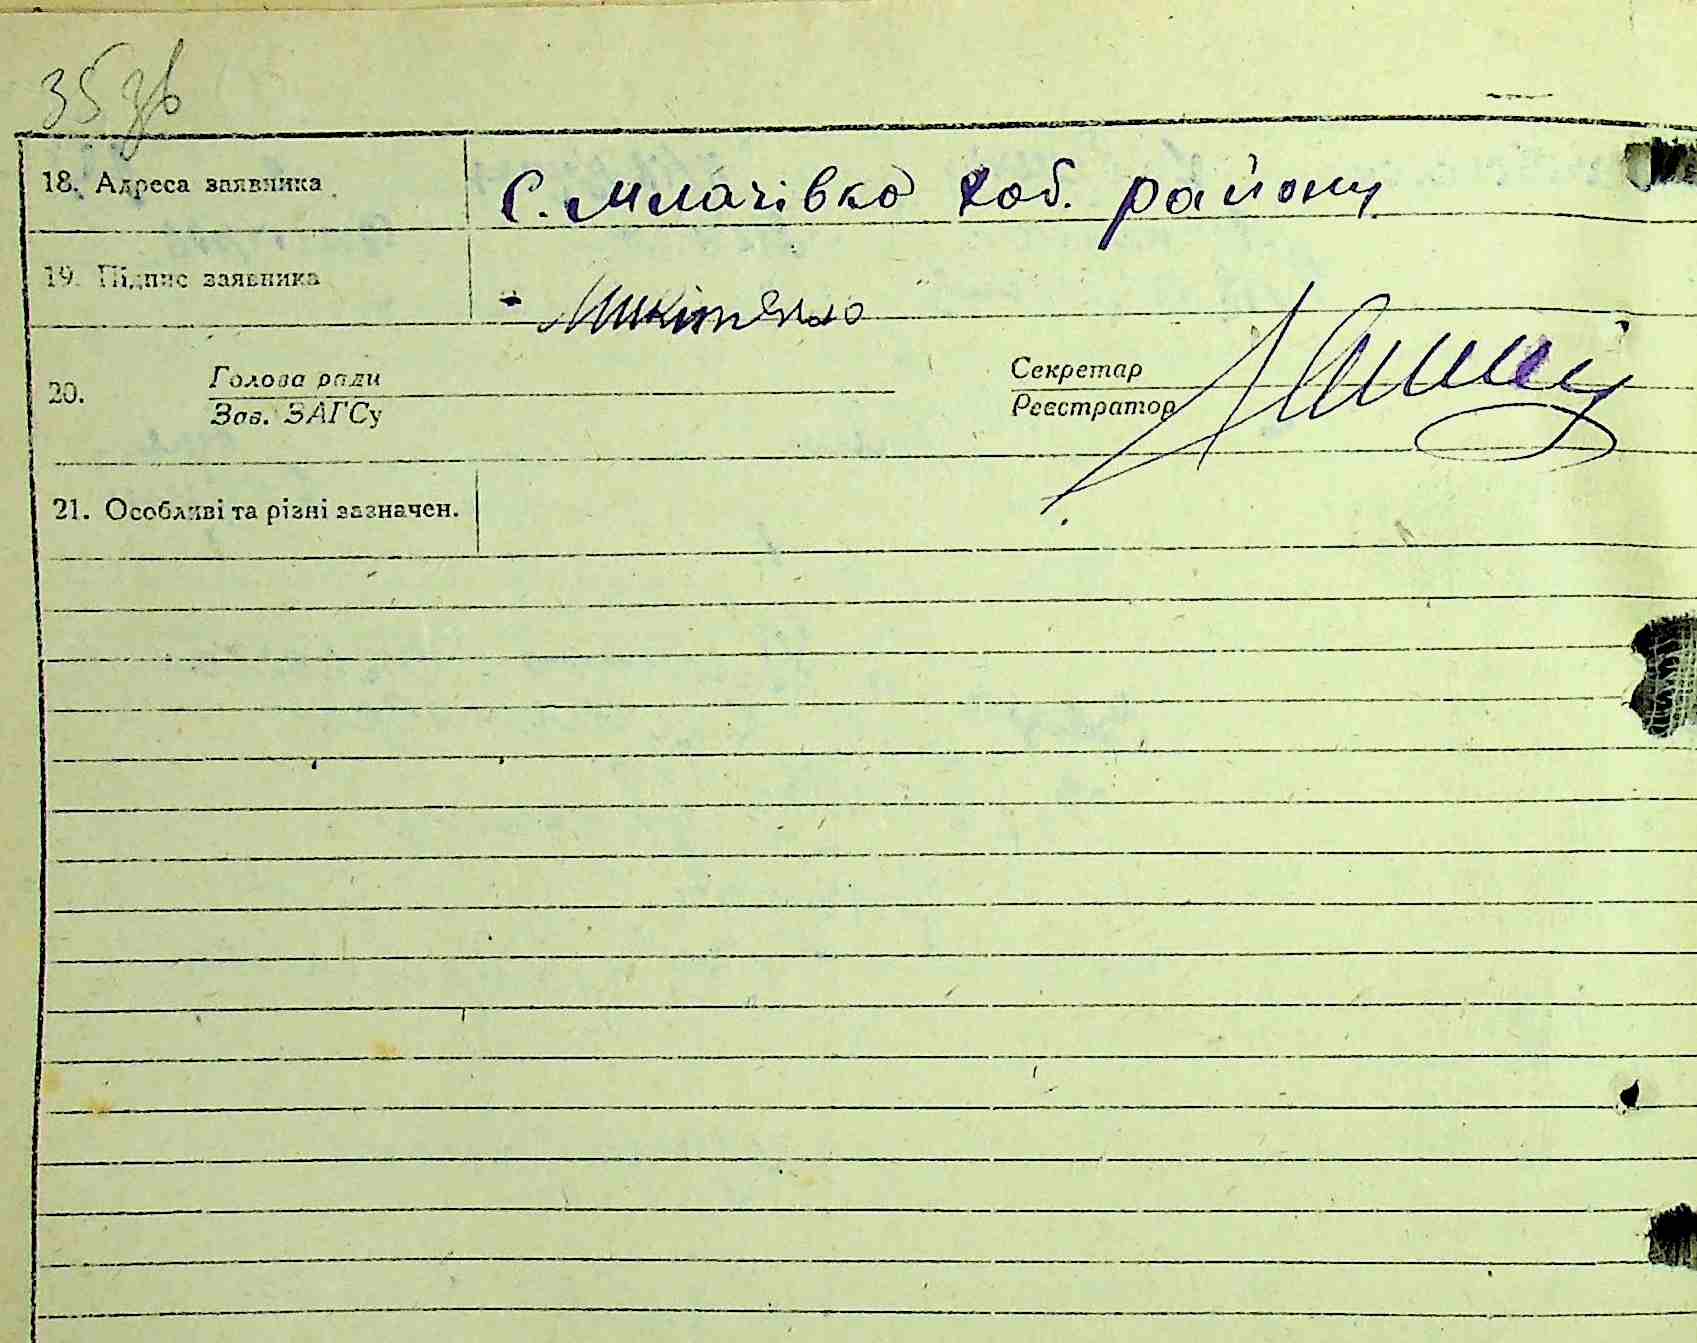 35 зв
18. Адреса заявника с. Млачівка Коб. району
19. Підпис заявника Микитенко
20. Голова ради Секретар
Зав. ЗАГСу Реєстратор
21. Особливі та різні зазначен.